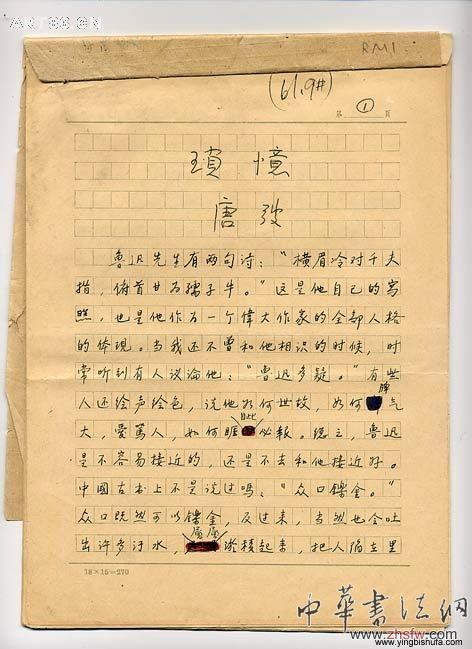 RM1
第①页
瑣憶
唐弢
鲁迅先生有两句诗："横眉冷对千夫
指，俯首甘为孺子牛。"这是他自己的写
照，也是他作为一个偉大作家的全部人格
的体现。当我还不曾和他相识的时候，时
常听到有人议論他："鲁迅多疑。"有些
人还绘声绘色，说他如何世故，如何脾气
大，愛駡人，如何睚眦必報。總之，鲁迅
是不容易接近的，还是不去和他接近好。
中國古书上不是说过嗎："众口鑠金。"
众口既然可以鑠金，反过来，当然也会吐
出许多汙水，淤積起来，把人陷在里
18×15=270
中華書法網
www.zhsfw.com
www.yingbishufa.com